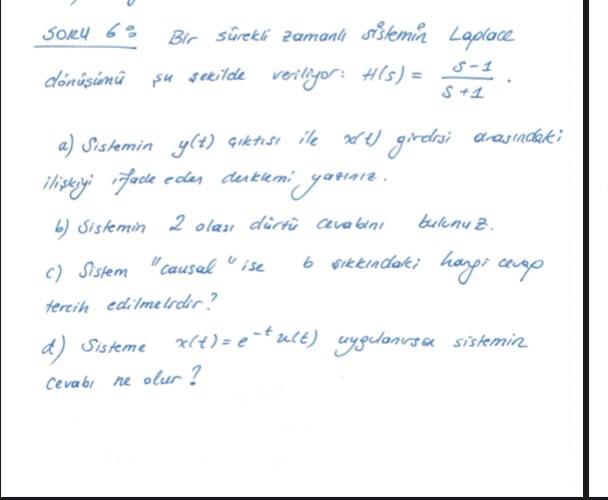 SORU 6: Bir sürekli zamanlı sistemin Laplace
dönüşümü şu şekilde veriliyor: H(s) = (s-1)/(s+1) .
a) Sistemin y(t) çıktısı ile x(t) girdisi arasındaki
ilişkiyi ifade eden denklemi yazınız.
b) Sistemin 2 olası dürtü cevabını bulunuz.
c) Sistem "causal" ise b şıkkındaki hangi cevap
tercih edilmelidir?
d) Sisteme x(t) = e^-t u(t) uygulanırsa sistemin
cevabı ne olur?